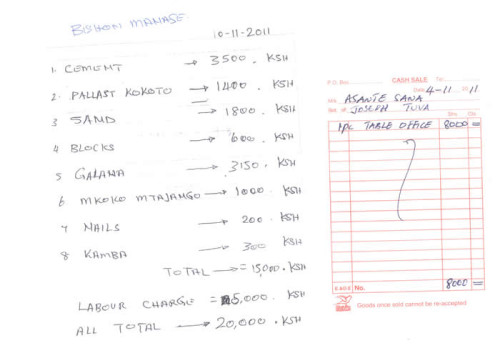 BISHON MANASE
10-11-2011
1. CEMENT → 3500. KSH
2. PALLAST KOKOTO → 1400. KSH
3 SAND → 1800. KSH
4 BLOCKS → 600. KSH
5 GALANA → 3150. KSH
6 MKOKO MTAJANGO → 1000 KSH
7 NAILS → 200. KSH
8 KAMBA → 300 KSH
TOTAL → = 15,000. KSH
LABOUR CHARGE = 5,000. KSH
ALL TOTAL → 20,000. KSH
P.O. Box
CASH SALE
Date 4-11 2011
M/s ASANTE SANA
JOSEPH TUVA
Shs. Cts.
1pc TABLE OFFICE 8000 =
E.&O.E No. 8000 =
Goods once sold cannot be re-accepted